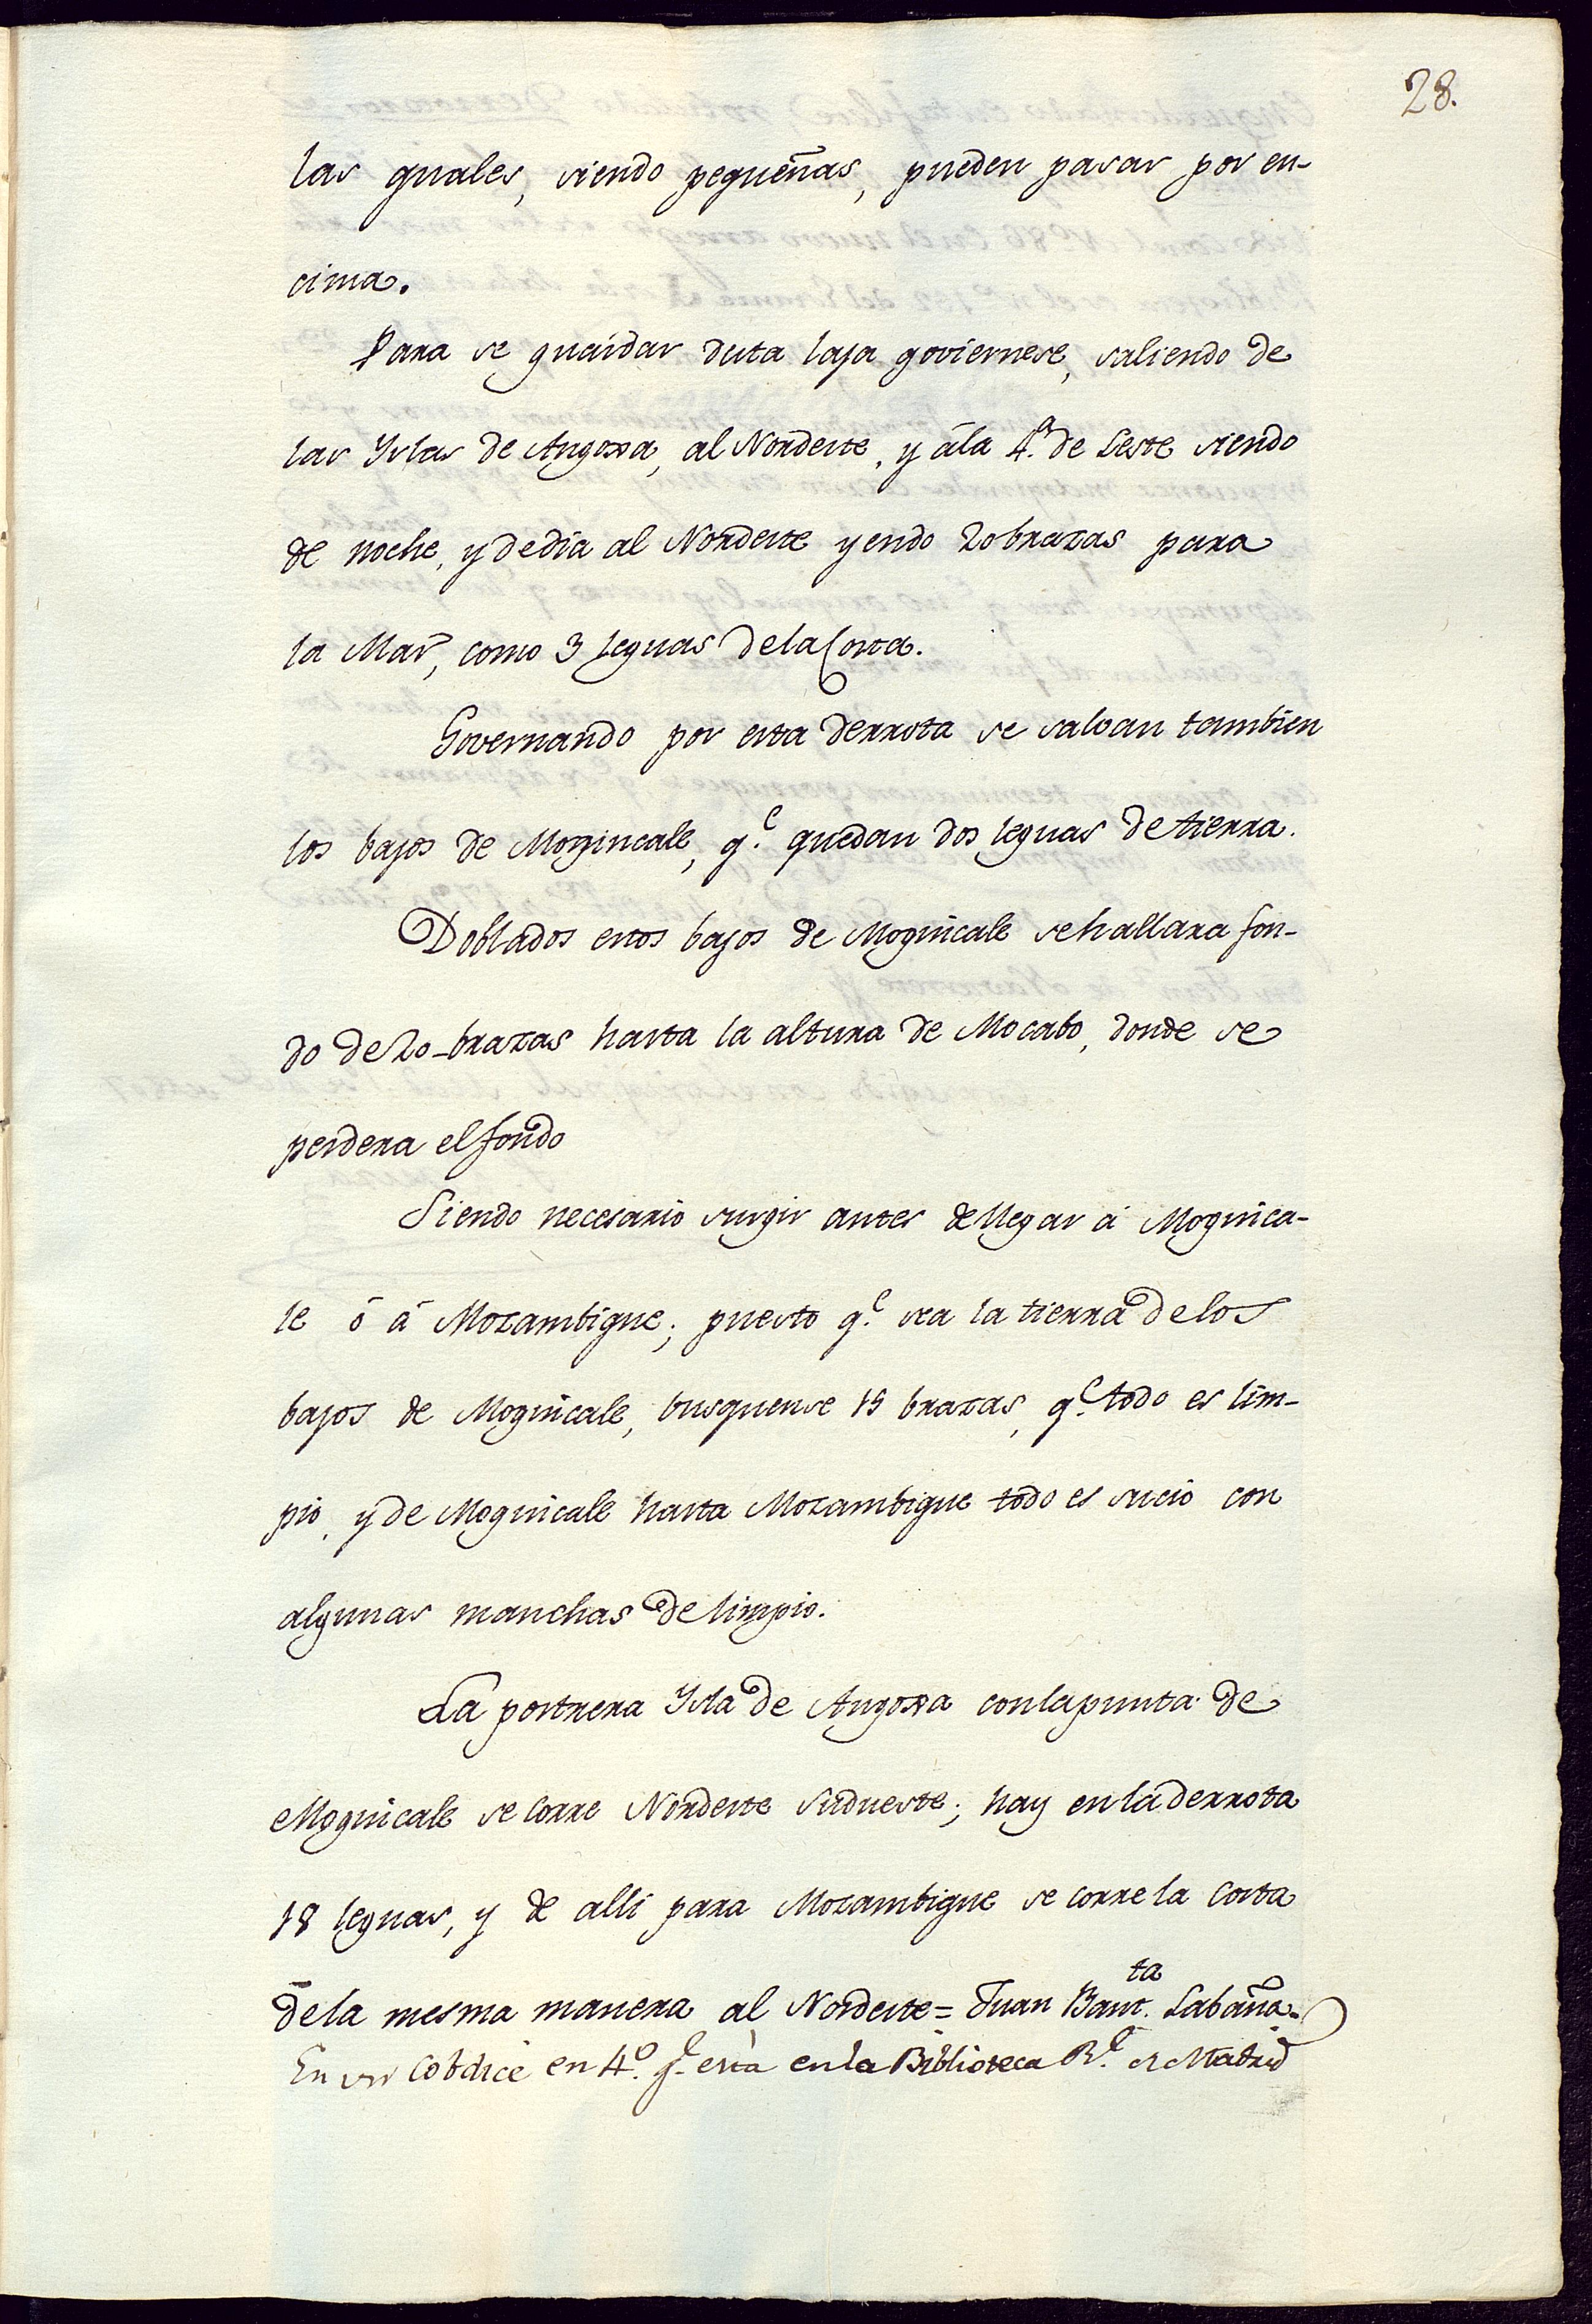 28.
las quales, siendo pequeñas, pueden pasar por en-
cima.
Para se guardar desta laja goviernese, saliendo de
las Yslas de Angoxa, al Nordeste, y ála 4.ª de Leste siendo
de noche, y de dia al Nordeste yendo 20 brazas para
la Mar, como 3 leguas dela Costa.
Governando por esta derrota se salvan tambien
los bajos de Mogincale, q.e quedan dos leguas de tierra.
Doblados estos bajos de Mogincale se hallara fon-
do de 20_brazas hasta la altura de Mocabo, donde se
perdera el fondo
Siendo necesario surgir antes de llegar á Moginca-
le ó á Mozambique; puesto q.e sea la tierra de los
bajos de Mogincale, busquense 15 brazas, q.e todo es lim-
pio, y de Mogincale hasta Mozambique todo es sucio con
algunas manchas de limpio.
La postrera Ysla de Angoxa con la punta de
Mogincale se corre Nordeste Sudueste; hay en la derrota
18 leguas, y de alli para Mozambique se corre la Costa
de la mesma manera al Nordeste = Juan Baut.ta Labaña.
En un Cobdice en 4.º q.e está en la Biblioteca R.l de Madrid